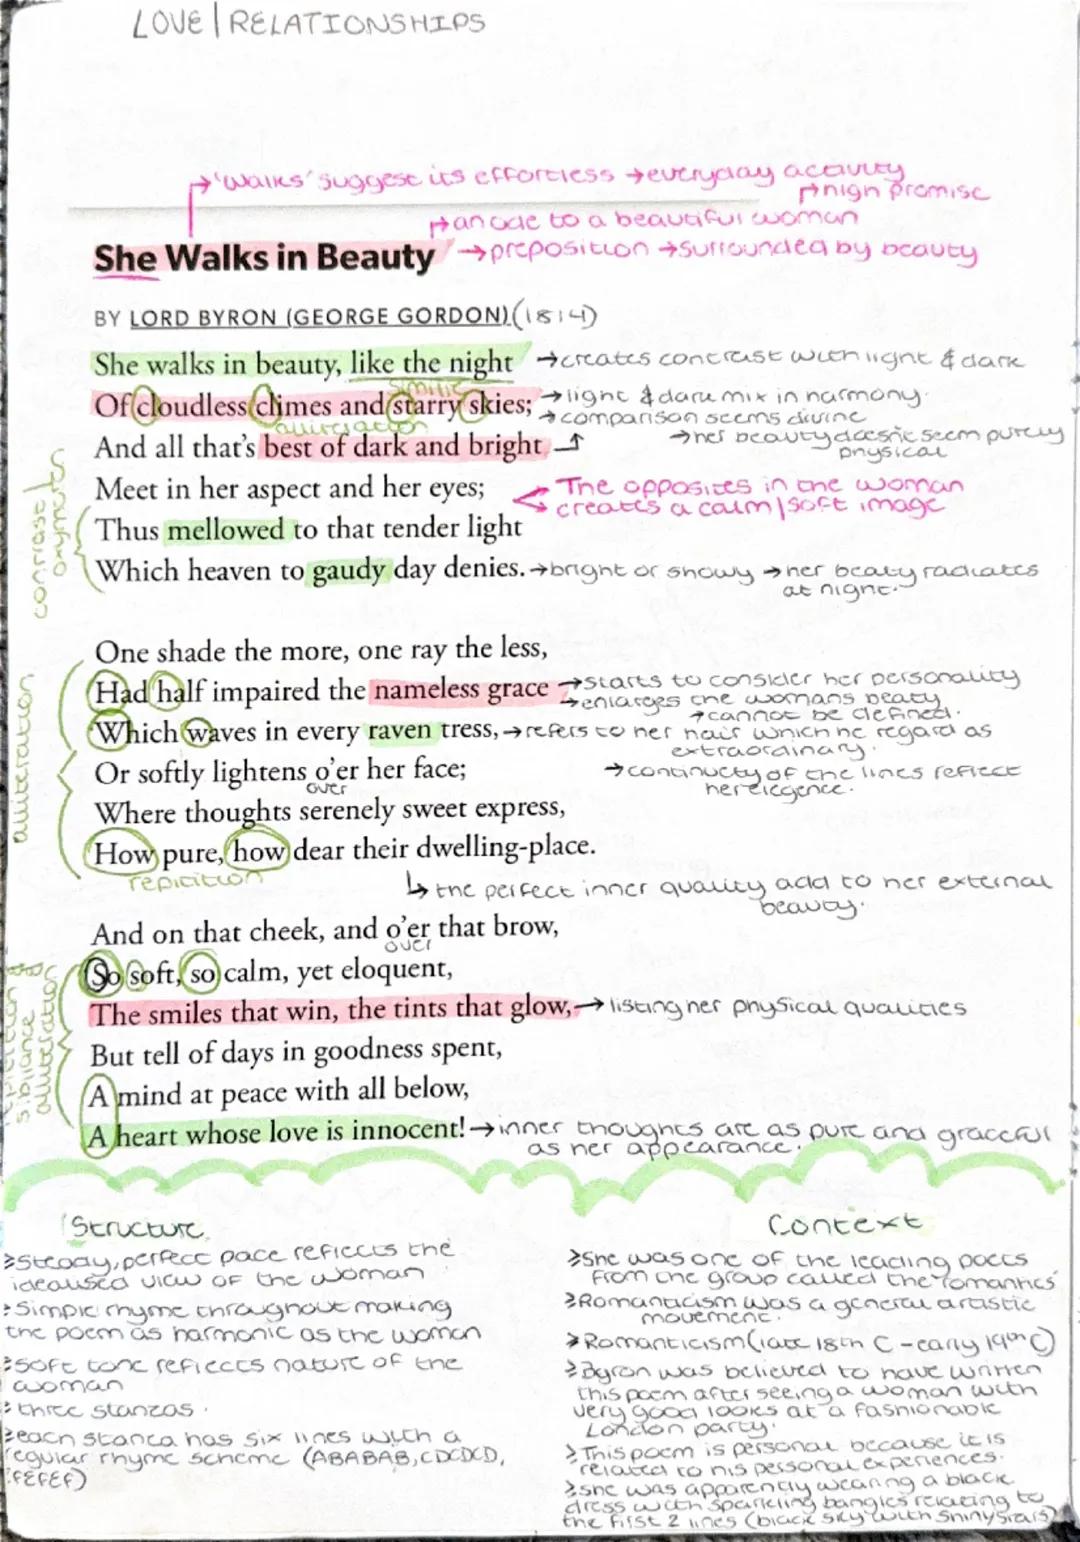 LOVE | RELATIONSHIPS
→'walks' suggest its effortless →everyday activity
→high promise
→an ode to a beautiful woman
She Walks in Beauty →preposition →surrounded by beauty
BY LORD BYRON (GEORGE GORDON) (1814)
She walks in beauty, like the night →creates contrast with light & dark
simile
Of cloudless climes and starry skies; →light & dark mix in harmony.
alliteration →comparison seems divine
And all that's best of dark and bright →her beauty doesn't seem purely physical
Meet in her aspect and her eyes; The opposites in the woman
creates a calm/soft image
Thus mellowed to that tender light
Which heaven to gaudy day denies. →bright or showy →her beauty radiates
at night.
contrast
One shade the more, one ray the less,
Had half impaired the nameless grace →starts to consider her personality
→enlarges the womans beaty
→cannot be defined.
Which waves in every raven tress, →refers to her hair which he regard as
extraordinary.
Or softly lightens o'er her face; →continuety of the lines reflect
over her elegence.
Where thoughts serenely sweet express,
How pure, how dear their dwelling-place.
repitition
↳ the perfect inner quality add to her external
beauty.
alliteration
And on that cheek, and o'er that brow,
over
So soft, so calm, yet eloquent,
The smiles that win, the tints that glow, →listing her physical qualities
But tell of days in goodness spent,
A mind at peace with all below,
A heart whose love is innocent! →inner thoughts are as pure and graceful
as her appearance.
sibilance
alliteration
Structure
>Steady, perfect pace reflects the
idealised view of the woman
>Simple rhyme throughout making
the poem as harmonic as the woman
>soft tone reflects nature of the
woman
>three stanzas.
>each stanza has six lines with a
regular rhyme scheme (ABABAB, CDCDCD,
EFEFEF)
Context
>She was one of the leading poets
from the group called the 'romantics'
>Romanticism was a general artistic
movement.
>Romanticism (late 18th C - early 19th C)
>Byron was believed to have written
this poem after seeing a woman with
very good looks at a fashionable
London party.
>This poem is personal because it is
related to his personal experiences.
>she was apparently wearing a black
dress with sparkling bangles relating to
the first 2 lines (black sky with shiny stars)